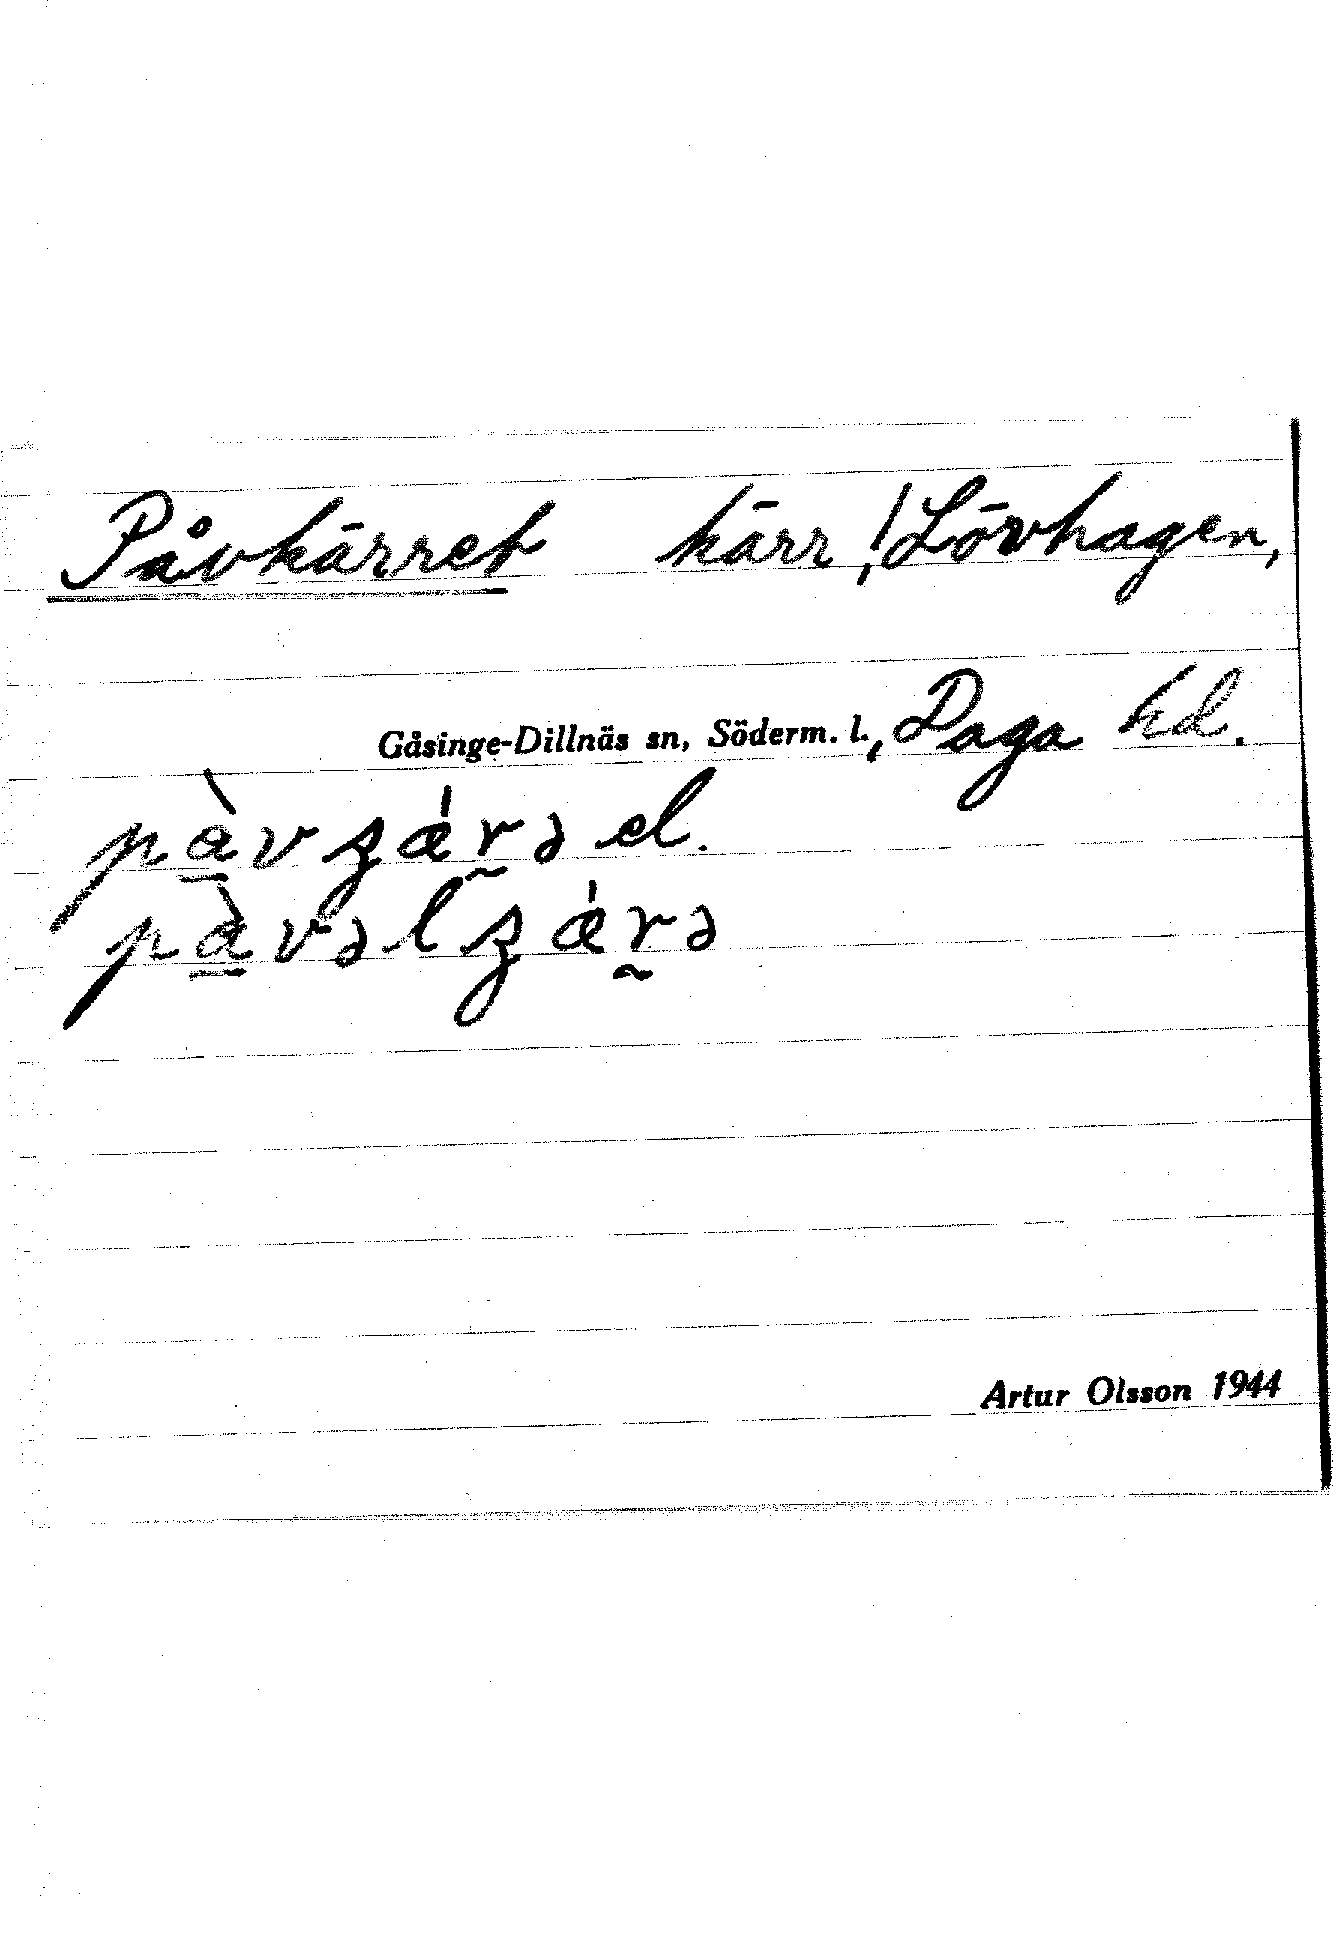 Påvkärret kärr, ! Lövhagen,
Gåsinge-Dillnäs sn, Söderm. l., Daga hd.
pàvʂǽrə el.
pàvəlʂǽrə
Artur Olsson 1944